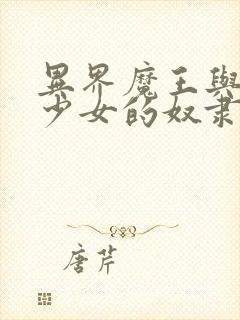 異界魔王與
少女的奴隶
唐芹